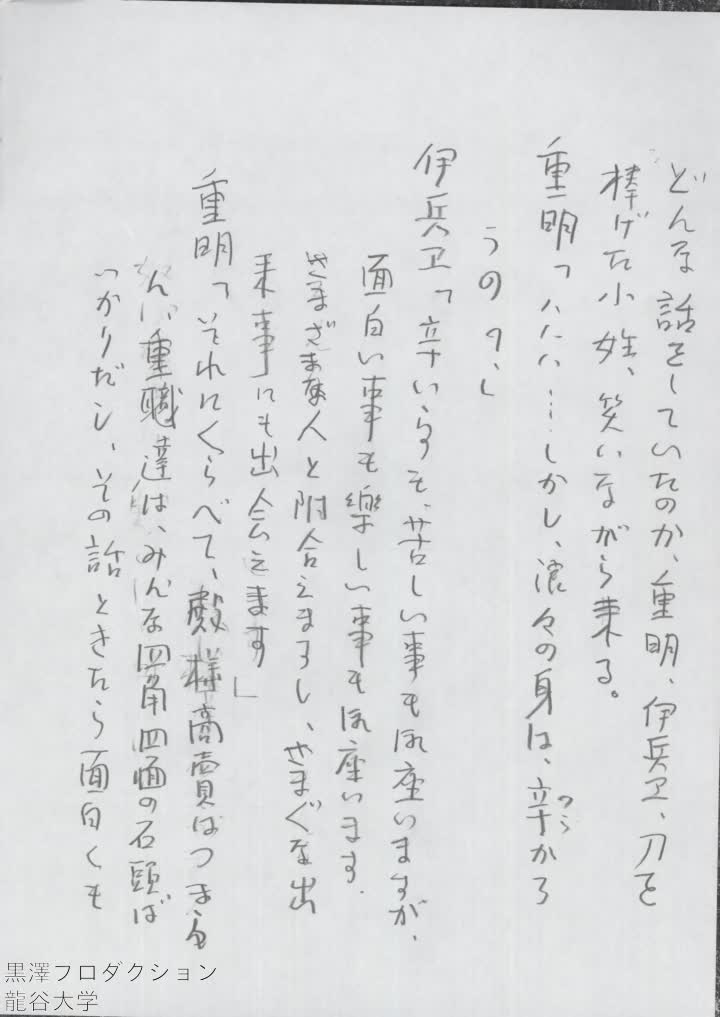 どんな話をしていたのか、重明、伊兵卫、刀を
棒げた小姓、笑いながら来る。
重明「ハハハ…しかし、浪々の身は、辛かろ
つら
うのう」
伊兵卫「辛い事も、苦しい事も御座いますが、
面白い事も楽しい事も御座います。
さまざまな人と附合えますし、さまざまな出
来事にも出会えます」
重明「それにくらべて、殿様商賣はつまらん
ん、重職達は、みんな四角四面の石頭ば
っかりだし、その話ときたら面白くも
黒澤プロダクション
龍谷大学